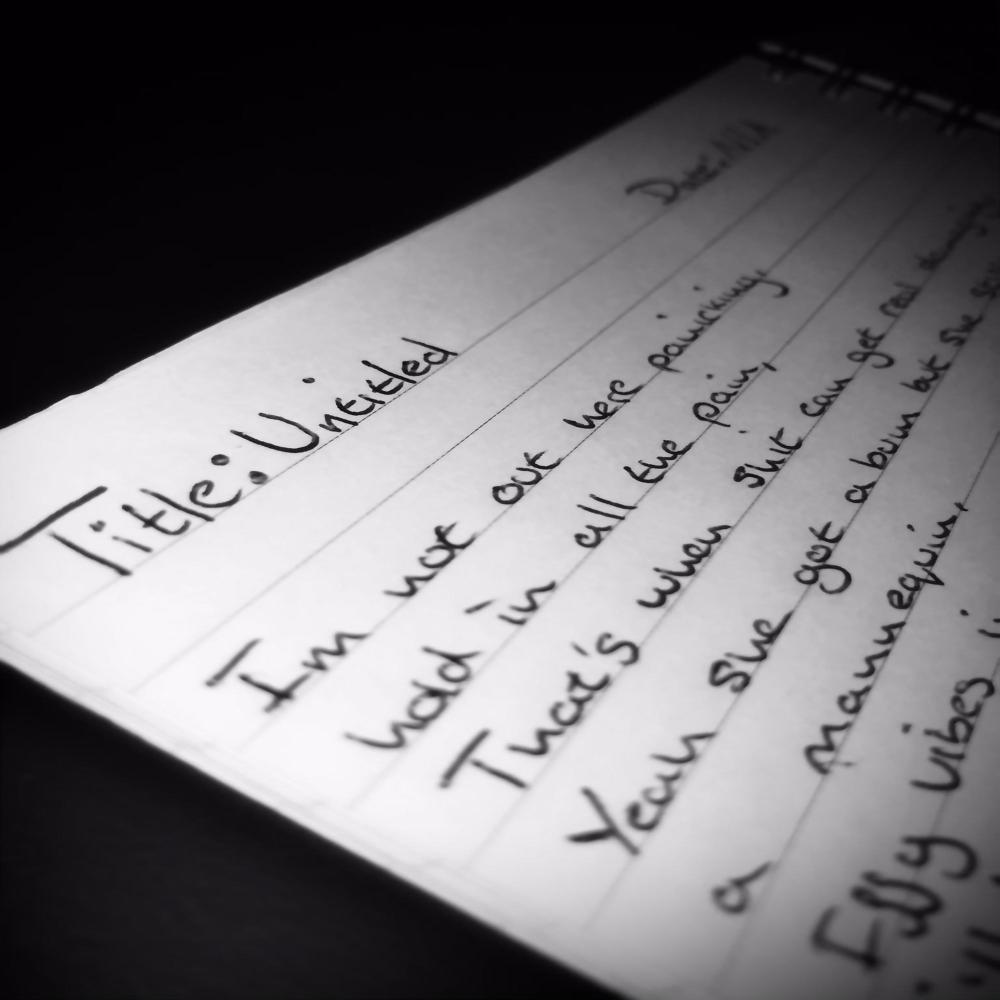 Title: Untitled
Date: N/A
Im not out here panicking,
hold in all the pain,
That's when shit can get real
Yeah she got a bum but she
a mannequin.
Iffy vibes